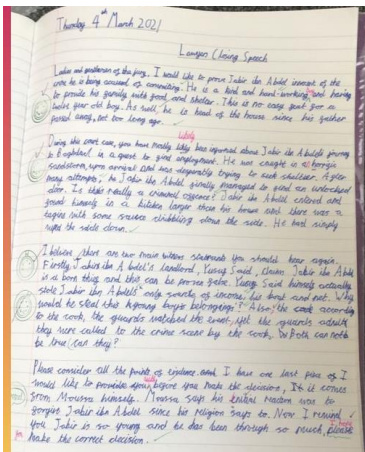 Thursday 4th March 2021
Lawyers Closing Speech
Ladies and gentlemen of the jury, I would like to prove Jabir ibn Abdel innocent of the
crime he is being accused of commiting. He is a kind and hard-working and having
to provide his family with food and shelter. This is no easy feat for a
twelve year old boy. As well, he is head of the house since his father
passed away, not too long ago.
During this court case, you have likely been informed about Jabir ibn Abdel's journey
to Baghdad in a quest to find employment. He was caught in a horrific
sandstorm upon arrival and was desperately trying to seek shelter. After
many attempts, Jabir ibn Abdel finally managed to find an unlocked
door. Is this really a criminal offence? Jabir ibn Abdel entered and
found himself in a kitchen larger then his house and there was a
tagine with some sauce dribbling down the side. He had simply
wiped the side down.
I believe there are two main witness statements you should hear again.
Firstly Jabir ibn Abdel's landlord, Yusuf Said, claims Jabir ibn Abdel
is a born thief and this can be proven false. Yusuf Said himself actually
stole Jabir ibn Abdels' only source of income, his boat and net. Why
would he steal this young boy's belongings? Also, the cook according
to the cook, the guards watched the event, yet the guards admit
they were called to the crime scene by the cook, Both can not
be true can they?
Please consider all the points of evidence and I have one last piece of I
would like to provide you before you make the decision, It it comes
from Moussa himself. Moussa says his initial reaction was to
forgive Jabir ibn Abdel since his religion says to. Now I remind
you Jabir is so young and he has been through so much, please
make the correct decision.